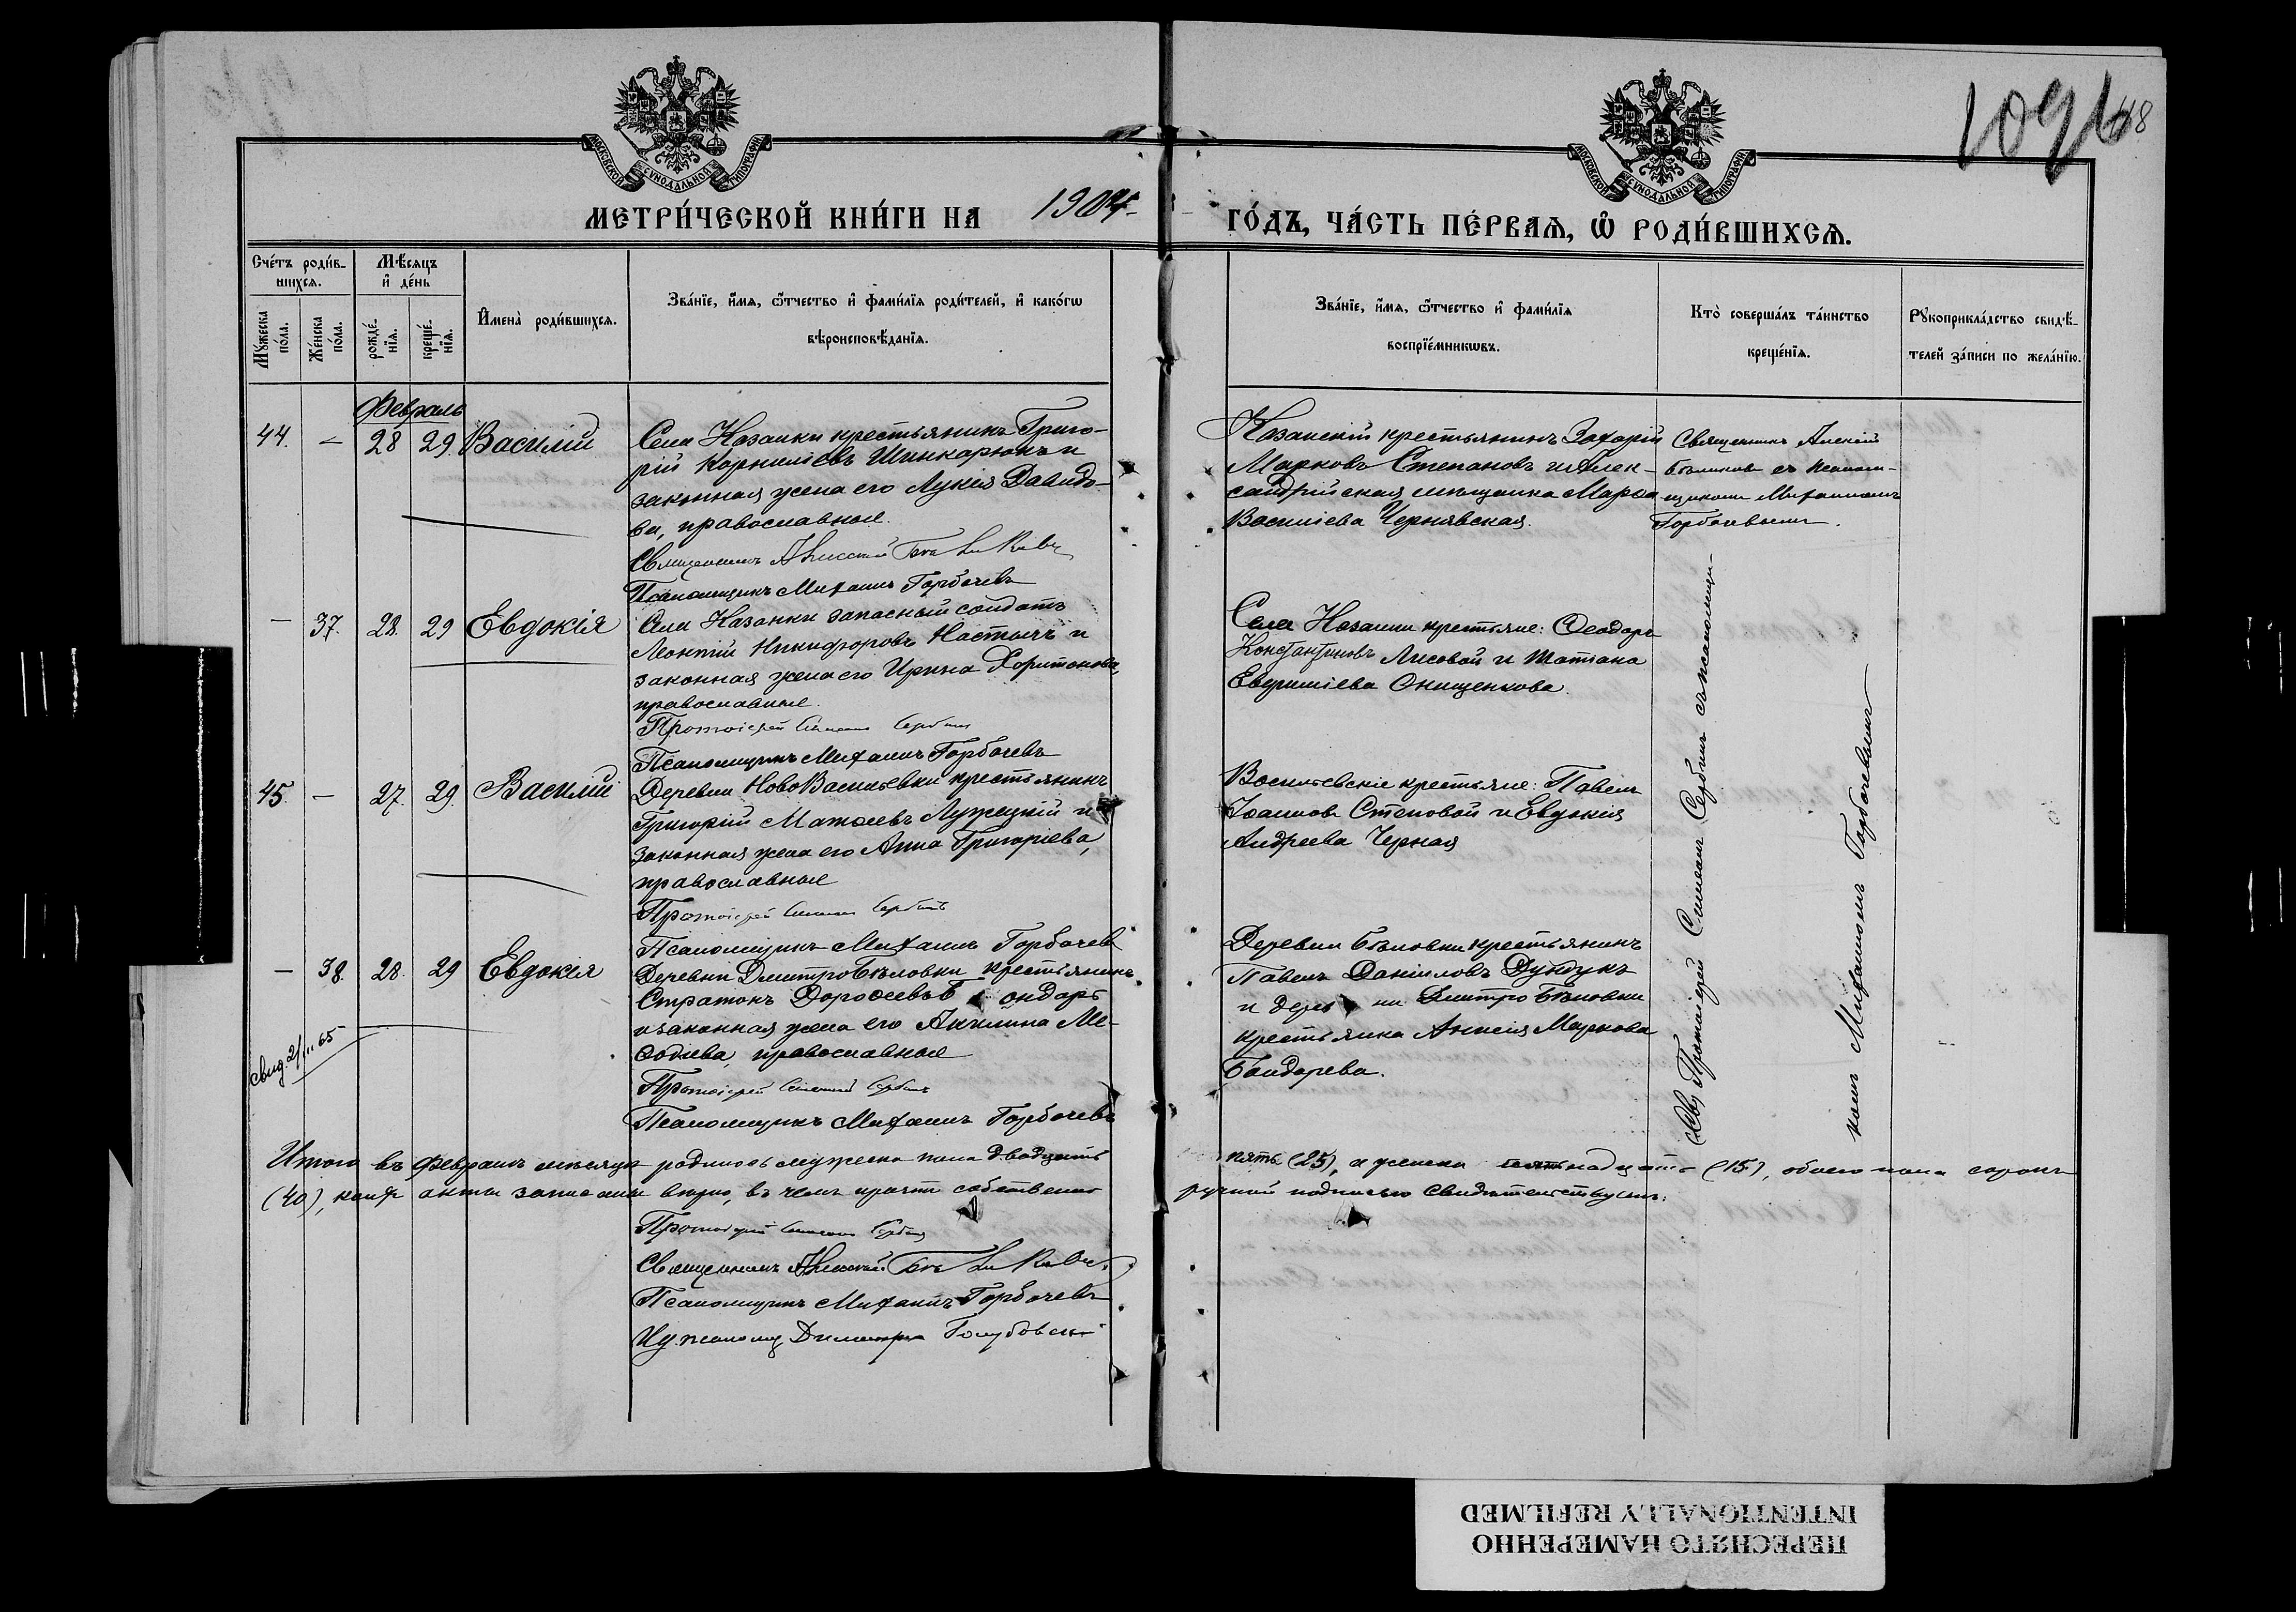 1091
48
МОСКОВСКОЙ СѴНОДАЛЬНОЙ ТИПОГРАФІИ
МОСКОВСКОЙ СѴНОДАЛЬНОЙ ТИПОГРАФІИ
МЕТРИ́ЧЕСКОЙ КНИ́ГИ НА 1904
ГО́ДЪ, ЧА́СТЬ ПЕ́РВАѦ, Ѽ РОДИ́ВШИХСѦ.
Сче́тъ роди́в-
шихсѧ.
Мꙋ́жеска по́ла.
Же́нска по́ла.
Мѣ́сѧцъ
и҆ де́нь
рожде́-нїѧ.
креще́-нїѧ.
И҆мена̀ роди́вшихсѧ.
Зва́нїе, и҆́мѧ, ѻ҆́тчество и҆ фами́лїѧ роди́телей, и҆ како́гѡ
вѣроисповѣ́данїѧ.
Зва́нїе, и҆́мѧ, ѻ҆́тчество и҆ фами́лїѧ
воспрїе́мникѡвъ.
Кто̀ соверша́лъ та́инство
креще́нїѧ.
Рꙋкоприкла́дство свидѣ́-
телей за́писи по жела́нїю.
Февраль
44. – 28 29. Василій
Села Казанки крестьянинъ Григо-
рій Корниліевъ Шинкарюкъ и
законная жена его Лукія Давидо-
ва, православные.
Священникъ Алексій Бѣликовъ
Псаломщикъ Михаилъ Горбачевъ
Казанскій крестьянинъ Захарій
Марковъ Степановъ и Алек-
сандрійская мѣщанка Марѳа
Василіева Чернявская.
Священникъ Алексій
Бѣликовъ съ псалом-
щикомъ Михаиломъ
Горбачевымъ.
– 37. 28. 29 Евдокія
Села Казанки запасный солдатъ
Леонтій Никифоровъ Настычъ и
законная жена его Ирина Харитонова,
православные.
Протоіерей Симеонъ Сербинъ
Псаломщикъ Михаилъ Горбачевъ
Села Казанки крестьяне: Ѳеодоръ
Константиновъ Лисовой и Татіана
Евфиміева Онищенкова.
45. – 27. 29. Василій
Деревни НовоВасильевки крестьянинъ
Григорій Матѳеевъ Лужецкій и
законная жена его Анна Григоріева,
православные
Протоіерей Симеонъ Сербинъ
Псаломщикъ Михаилъ Горбачевъ
Васильевскіе крестьяне: Павелъ
Іоанновъ Степовой и Евдокія
Андреева Черная
– 38. 28. 29 Евдокія
Деревни ДмитроБѣловки крестьянинъ
Стратонъ Дороѳеевъ Б ондарь
и законная жена его Акилина Ме-
ѳодіева, православные
Протоіерей Симеонъ Сербинъ
Псаломщикъ Михаилъ Горбачевъ
Деревни Бѣловки крестьянинъ
Павелъ Даніиловъ Дундукъ
и дерев ни Дмитро Бѣловки
крестьянка Анисія Маркова
Бондарева.
свид. 2/III 65
Протоіерей Симеонъ Сербинъ съ псаломщи-
комъ Михаиломъ Горбачевымъ
Итого въ Февралѣ мѣсяцѣ родилось мужеска пола двадцать пять (25), а женска пятьнадцать (15), обоего пола сорокъ
(40), акты записаны вѣрно, въ чемъ причтъ собственно ручной подписью свидѣтельствуемъ:
Протоіерей Симеонъ Сербинъ
Священникъ Алексій Бѣликовъ
Псаломщикъ Михаилъ Горбачевъ
Голубовскій
ПЕРЕСНЯТО НАМЕРЕННО
INTENTIONALLY REFILMED